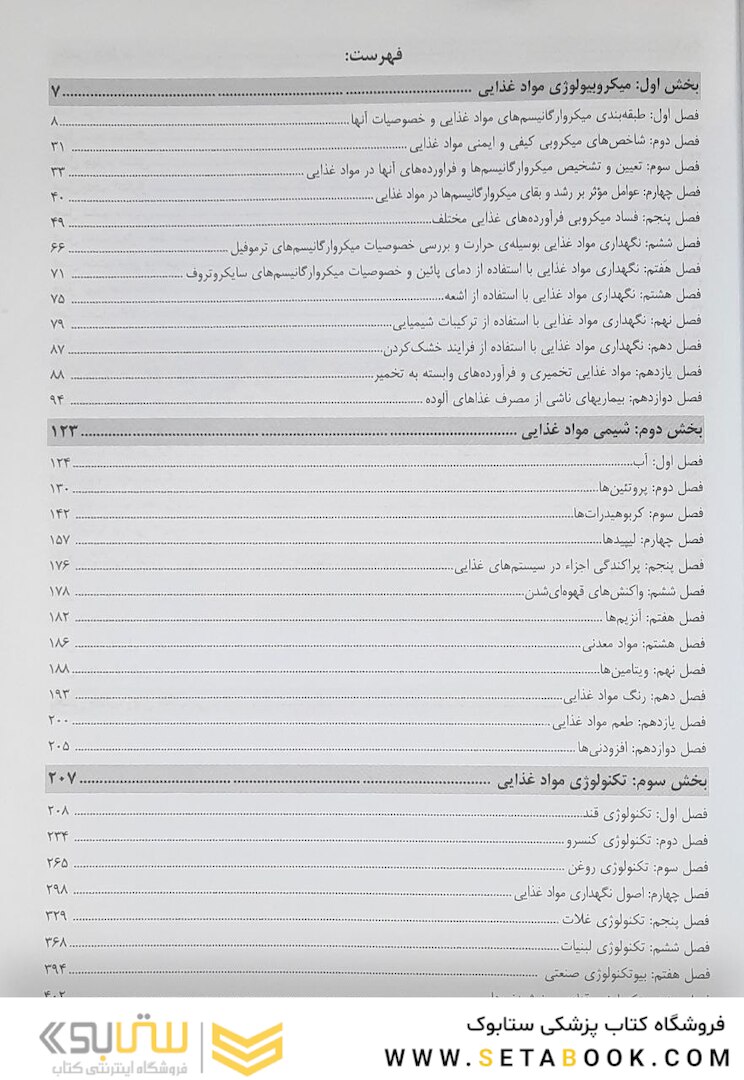 فهرست:
بخش اول: میکروبیولوژی مواد غذایی ........ ۷
فصل اول: طبقه‌بندی میکروارگانیسم‌های مواد غذایی و خصوصیات آنها ........ ۸
فصل دوم: شاخص‌های میکروبی کیفی و ایمنی مواد غذایی ........ ۳۱
فصل سوم: تعیین و تشخیص میکروارگانیسم‌ها و فراورده‌های آنها در مواد غذایی ........ ۳۳
فصل چهارم: عوامل مؤثر بر رشد و بقای میکروارگانیسم‌ها در مواد غذایی ........ ۴۰
فصل پنجم: فساد میکروبی فرآورده‌های غذایی مختلف ........ ۴۹
فصل ششم: نگهداری مواد غذایی بوسیله‌ی حرارت و بررسی خصوصیات میکروارگانیسم‌های ترموفیل ........ ۶۶
فصل هفتم: نگهداری مواد غذایی با استفاده از دمای پائین و خصوصیات میکروارگانیسم‌های سایکروتروف ........ ۷۱
فصل هشتم: نگهداری مواد غذایی با استفاده از اشعه ........ ۷۵
فصل نهم: نگهداری مواد غذایی با استفاده از ترکیبات شیمیایی ........ ۷۹
فصل دهم: نگهداری مواد غذایی با استفاده از فرایند خشک‌کردن ........ ۸۷
فصل یازدهم: مواد غذایی تخمیری و فرآورده‌های وابسته به تخمیر ........ ۸۸
فصل دوازدهم: بیماریهای ناشی از مصرف غذاهای آلوده ........ ۹۴
بخش دوم: شیمی مواد غذایی ........ ۱۲۳
فصل اول: آب ........ ۱۲۴
فصل دوم: پروتئین‌ها ........ ۱۳۰
فصل سوم: کربوهیدرات‌ها ........ ۱۴۲
فصل چهارم: لیپیدها ........ ۱۵۷
فصل پنجم: پراکندگی اجزاء در سیستم‌های غذایی ........ ۱۷۶
فصل ششم: واکنش‌های قهوه‌ای‌شدن ........ ۱۷۸
فصل هفتم: آنزیم‌ها ........ ۱۸۲
فصل هشتم: مواد معدنی ........ ۱۸۶
فصل نهم: ویتامین‌ها ........ ۱۸۸
فصل دهم: رنگ مواد غذایی ........ ۱۹۳
فصل یازدهم: طعم مواد غذایی ........ ۲۰۰
فصل دوازدهم: افزودنی‌ها ........ ۲۰۵
بخش سوم: تکنولوژی مواد غذایی ........ ۲۰۷
فصل اول: تکنولوژی قند ........ ۲۰۸
فصل دوم: تکنولوژی کنسرو ........ ۲۳۴
فصل سوم: تکنولوژی روغن ........ ۲۶۵
فصل چهارم: اصول نگهداری مواد غذایی ........ ۲۹۸
فصل پنجم: تکنولوژی غلات ........ ۳۲۹
فصل ششم: تکنولوژی لبنیات ........ ۳۶۸
فصل هفتم: بیوتکنولوژی صنعتی ........ ۳۹۴
فروشگاه کتاب پزشکی ستابوک
WWW.SETABOOK.COM
ستابوک
فروشگاه اینترنتی کتاب